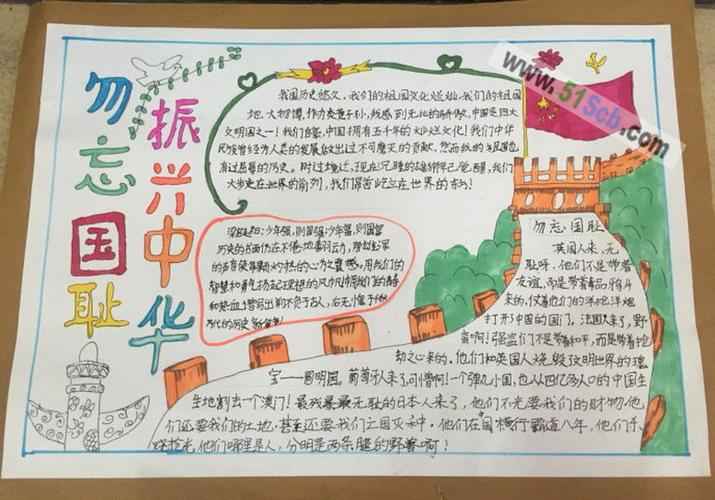 勿忘国耻
振兴中华
www.51Scb.com
我国历史悠久，我们的祖国文化灿烂，我们的祖国
地大物博，作为炎黄子孙，我感到无比的骄傲，中国是四大
文明国之一！我们自豪，中国拥有五千年的灿烂文化！我们中华
民族曾经为人类的发展做出过不可磨灭的贡献，然而我的祖国也
有过屈辱的历史。时过境迁，现在沉睡的雄狮早已觉醒，我们
大步走在世界的前列，我们屹立在世界的东方！
少年强，则国强少年富，则国富
历史的书面仍在不倦地翻动，
的声音使每颗灼热的心为之震撼。用我们的
智慧和勇气扬起理想的风帆用我们的青春
和热血谱写出前不负于古人，后无愧于
万代的历史新篇章！
勿忘国耻
英国人来，无
耻呀，他们不是带着
友谊，而是带着毒品鸦片
来的，仗着他们的洋枪洋炮
打开了中国的国门。法国人来了，野
蛮啊！强盗们不是带着和平，而是带着抢
劫之心来的，他们和英国人烧毁文明世界的瑰
宝——圆明园。葡萄牙人来了可惜啊！一个弹丸小国，也从四亿多人口的中国生
生地割去一个澳门！最残暴最无耻的日本人来了，他们不光要我们的财物他
们还要我们的土地，甚至还要我们亡国灭种，他们在中国横行霸道八年，他们杀
烧抢光，他们哪里是人，分明是两条腿的野兽啊！